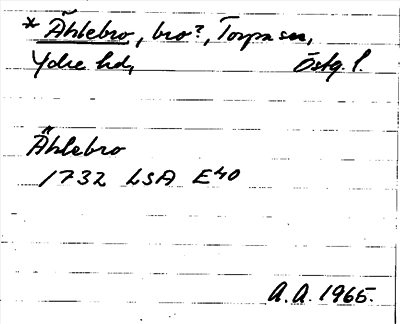 * Ählebro, bro?, Torpa sn,
Ydre hd, Östg. l.
Ählebro
1732 LSA E40
A.A. 1965.